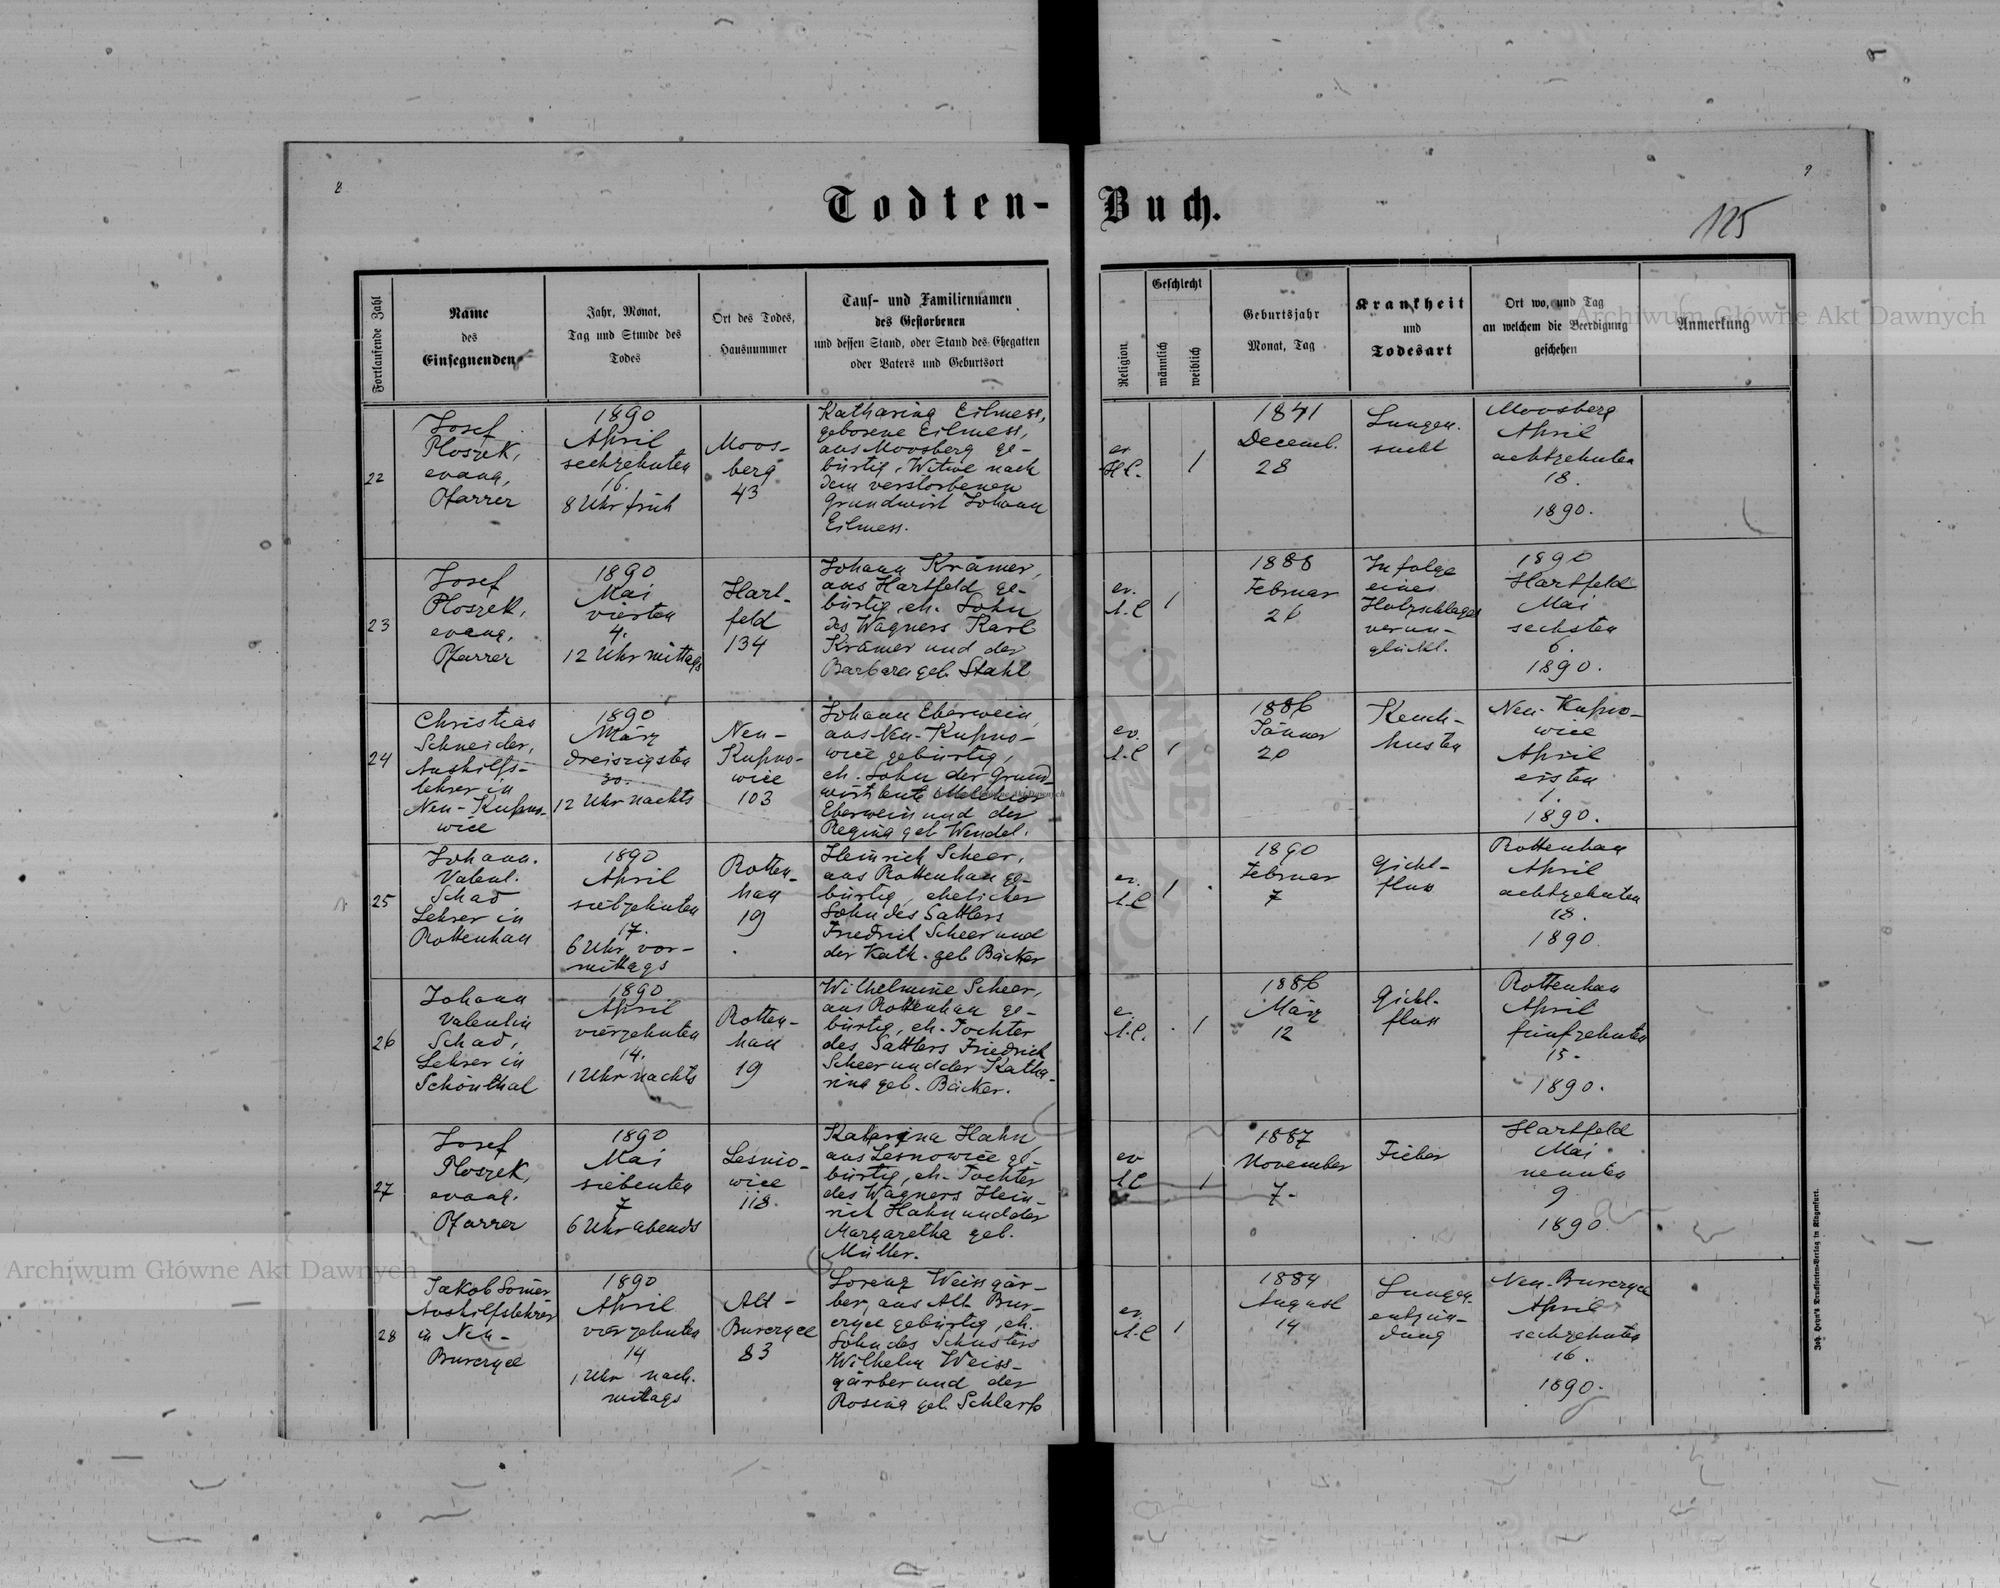 8
9
Todten-Buch.
125
Fortlaufende Zahl
Name
des
Einsegnenden
Jahr, Monat,
Tag und Stunde des
Todes
Ort des Todes,
Hausnummer
Tauf- und Familiennamen
des Gestorbenen
und dessen Stand, oder Stand des Ehegatten
oder Vaters und Geburtsort
Religion
Geschlecht
männlich
weiblich
Geburtsjahr
Monat, Tag
Krankheit
und
Todesart
Ort wo, und Tag
an welchem die Beerdigung
geschehen
Anmerkung
22
Josef
Ploszek,
evang.
Pfarrer
1890
April
sechzehnten
16.
8 Uhr früh
Moos-
berg
43
Katharina Eilmess,
geborene Eilmess,
aus Moosberg ge-
bürtig, Witwe nach
dem verstorbenen
Grundwirt Johann
Eilmess.
ev
H.C.
1
1841
Decemb.
28
Lungen-
sucht
Moosberg
April
achtzehnten
18.
1890.
23
Josef
Ploszek,
evang.
Pfarrer
1890
Mai
vierten
4.
12 Uhr mittags
Hart-
feld
134
Johann Krämer,
aus Hartfeld ge-
bürtig, eh. Sohn
des Wagners Karl
Krämer und der
Barbara geb. Stahl
ev.
A.C
1
1888
Februar
26
Infolge
eines
Holzschlages
verun-
glückt.
1890
Hartfeld
Mai
sechsten
6.
1890.
24
Christian
Schneider,
Aushilfs-
lehrer in
Neu-Kupno-
wice
1890
März
dreiszigsten
30.
12 Uhr nachts
Neu-
Kupno-
wice
103
Johann Eberwein,
aus Neu-Kupno-
wice gebürtig,
eh. Sohn der Grund-
wirtsleute Melchior
Eberwein und der
Regina geb. Wendel.
ev.
A.C
1
1886
Jänner
20
Keuch-
husten
Neu-Kupno-
wice
April
ersten
1.
1890.
25
Johann.
Valent.
Schad
Lehrer in
Rottenhan
1890
April
siebzehnten
17.
6 Uhr vor-
mittags
Rotten-
han
19
Heinrich Scheer,
aus Rottenhan ge-
bürtig, ehelicher
Sohn des Sattlers
Friedrich Scheer und
der Kath. geb. Bäcker
ev.
A.C
1
1890
Februar
7
Gicht-
fluss
Rottenhan
April
achtzehnten
18.
1890.
26
Johann
Valentin
Schad,
Lehrer in
Schönthal
1890
April
vierzehnten
14.
1 Uhr nachts
Rotten-
han
19
Wilhelmine Scheer,
aus Rottenhan ge-
bürtig, eh. Tochter
des Sattlers Friedrich
Scheer und der Katha-
rina geb. Bäcker.
A.C.
1
1886
März
12
Gicht-
fluss
Rottenhan
April
fünfzehnten
15.
1890.
27
Josef
Ploszek,
evang.
Pfarrer
1890
Mai
siebenten
7
6 Uhr abends
Lesnio-
wice
118.
Katarina Hahn
aus Lesnowice ge-
bürtig, eh. Tochter
des Wagners Hein-
rich Hahn und der
Margaretha geb.
Müller.
ev
A.C
1
1887
November
7.
Fieber
Hartfeld
Mai
neunten
9
1890.
28
Jakob Somer
Aushilfslehrer
in Neu-
Burczyce
1890
April
vierzehnten
14
1 Uhr nach-
mittags
Alt-
Burczyce
83
Lorenz Weissgär-
ber, aus Alt Bur-
czyce gebürtig, eh.
Sohn des Schusters
Wilhelm Weiss-
gärber und der
Rosina geb. Schlarp
ev.
A.C
1
1884
August
14
Lungen-
entzün-
dung
Neu-Burczyce
April
sechzehnten
16.
1890.
Joh. Heyn's Drucksorten-Verlag in Klagenfurt.
Archiwum Główne Akt Dawnych
Archiwum Główne Akt Dawnych